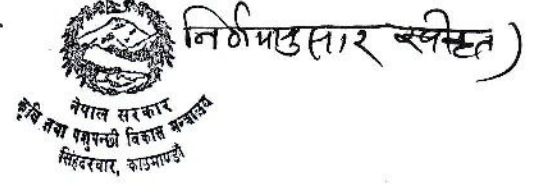 निर्णयानुसार स्वीकृत)
नेपाल सरकार
कृषि तथा पशुपन्छी विकास मन्त्रालय
सिंहदरवार, काठमाण्डौ